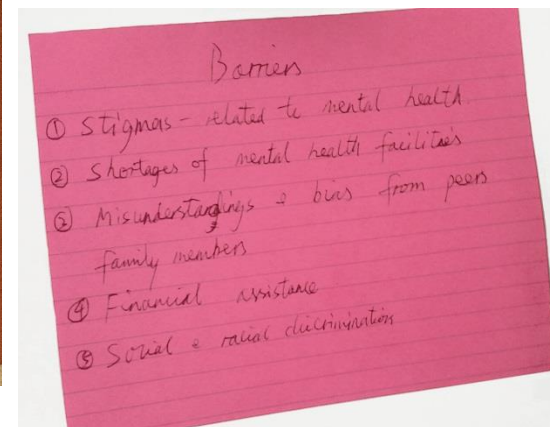 Barriers
① Stigmas - related to mental health
② Shortages of mental health facilities
③ Misunderstandings & bias from peers
family members
④ Financial assistance
⑤ Social & racial discrimination